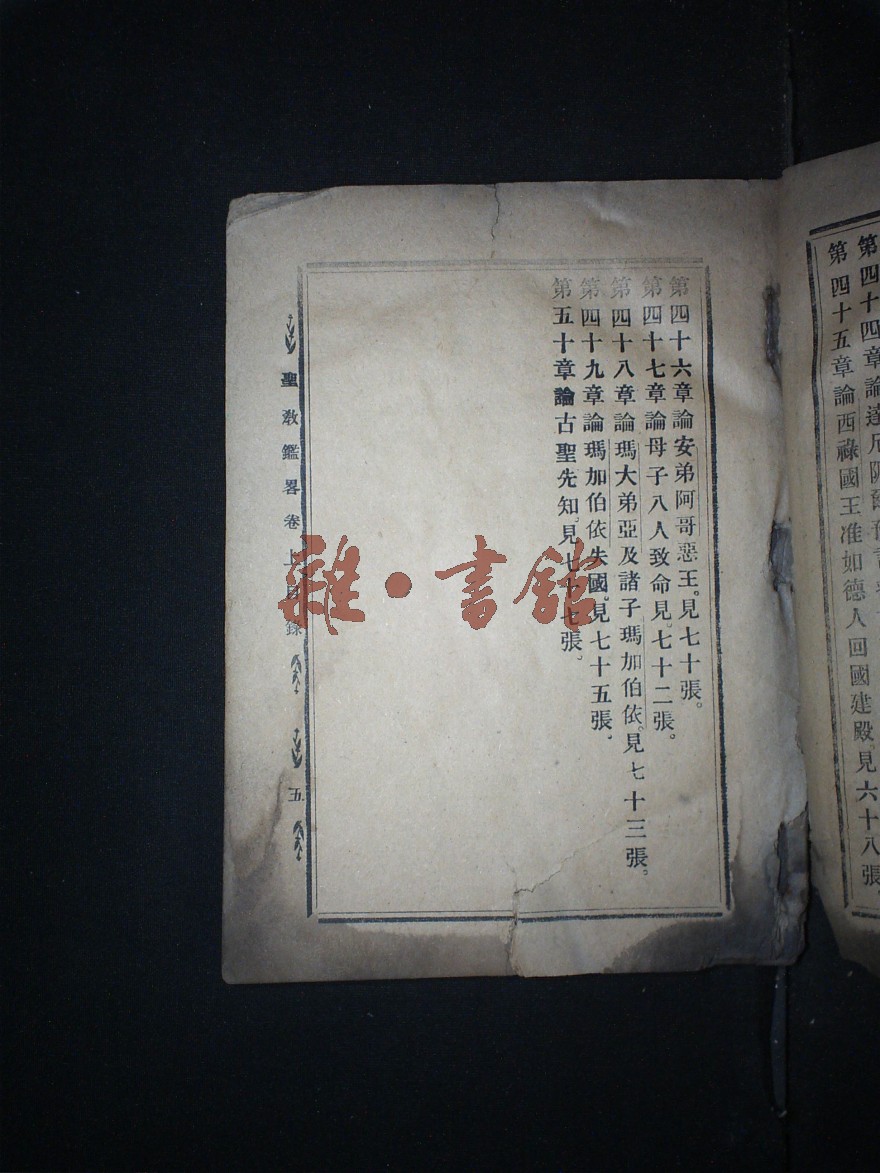 第四十四章論達尼阿爾預言
第四十五章論西祿國王准如德人回國建殿。見六十八張。
第四十六章論安弟阿哥惡王。見七十張。
第四十七章論母子八人致命見。七十二張。
第四十八章論瑪大弟亞及諸子瑪加伯依。見七十三張。
第四十九章論瑪加伯依失國。見七十五張.
第五十章論古聖先知。見七十七張。
聖教鑑畧卷上目錄
五
雜·書館